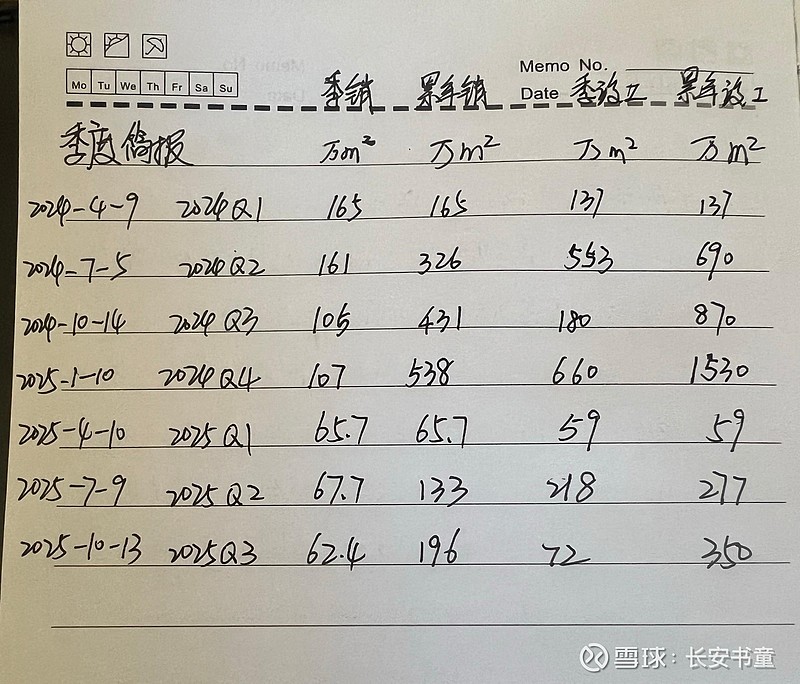 Memo No.
Mo Tu We Th Fr Sa Su
Date
季销 累年销 季竣工 累年竣工
季度简报 万m² 万m² 万m² 万m²
2024-4-9 2024Q1 165 165 137 137
2024-7-5 2024Q2 161 326 553 690
2024-10-14 2024Q3 105 431 180 870
2025-1-10 2024Q4 107 538 660 1530
2025-4-10 2025Q1 65.7 65.7 59 59
2025-7-9 2025Q2 67.7 133 218 277
2025-10-13 2025Q3 62.4 196 72 350
雪球：长安书童